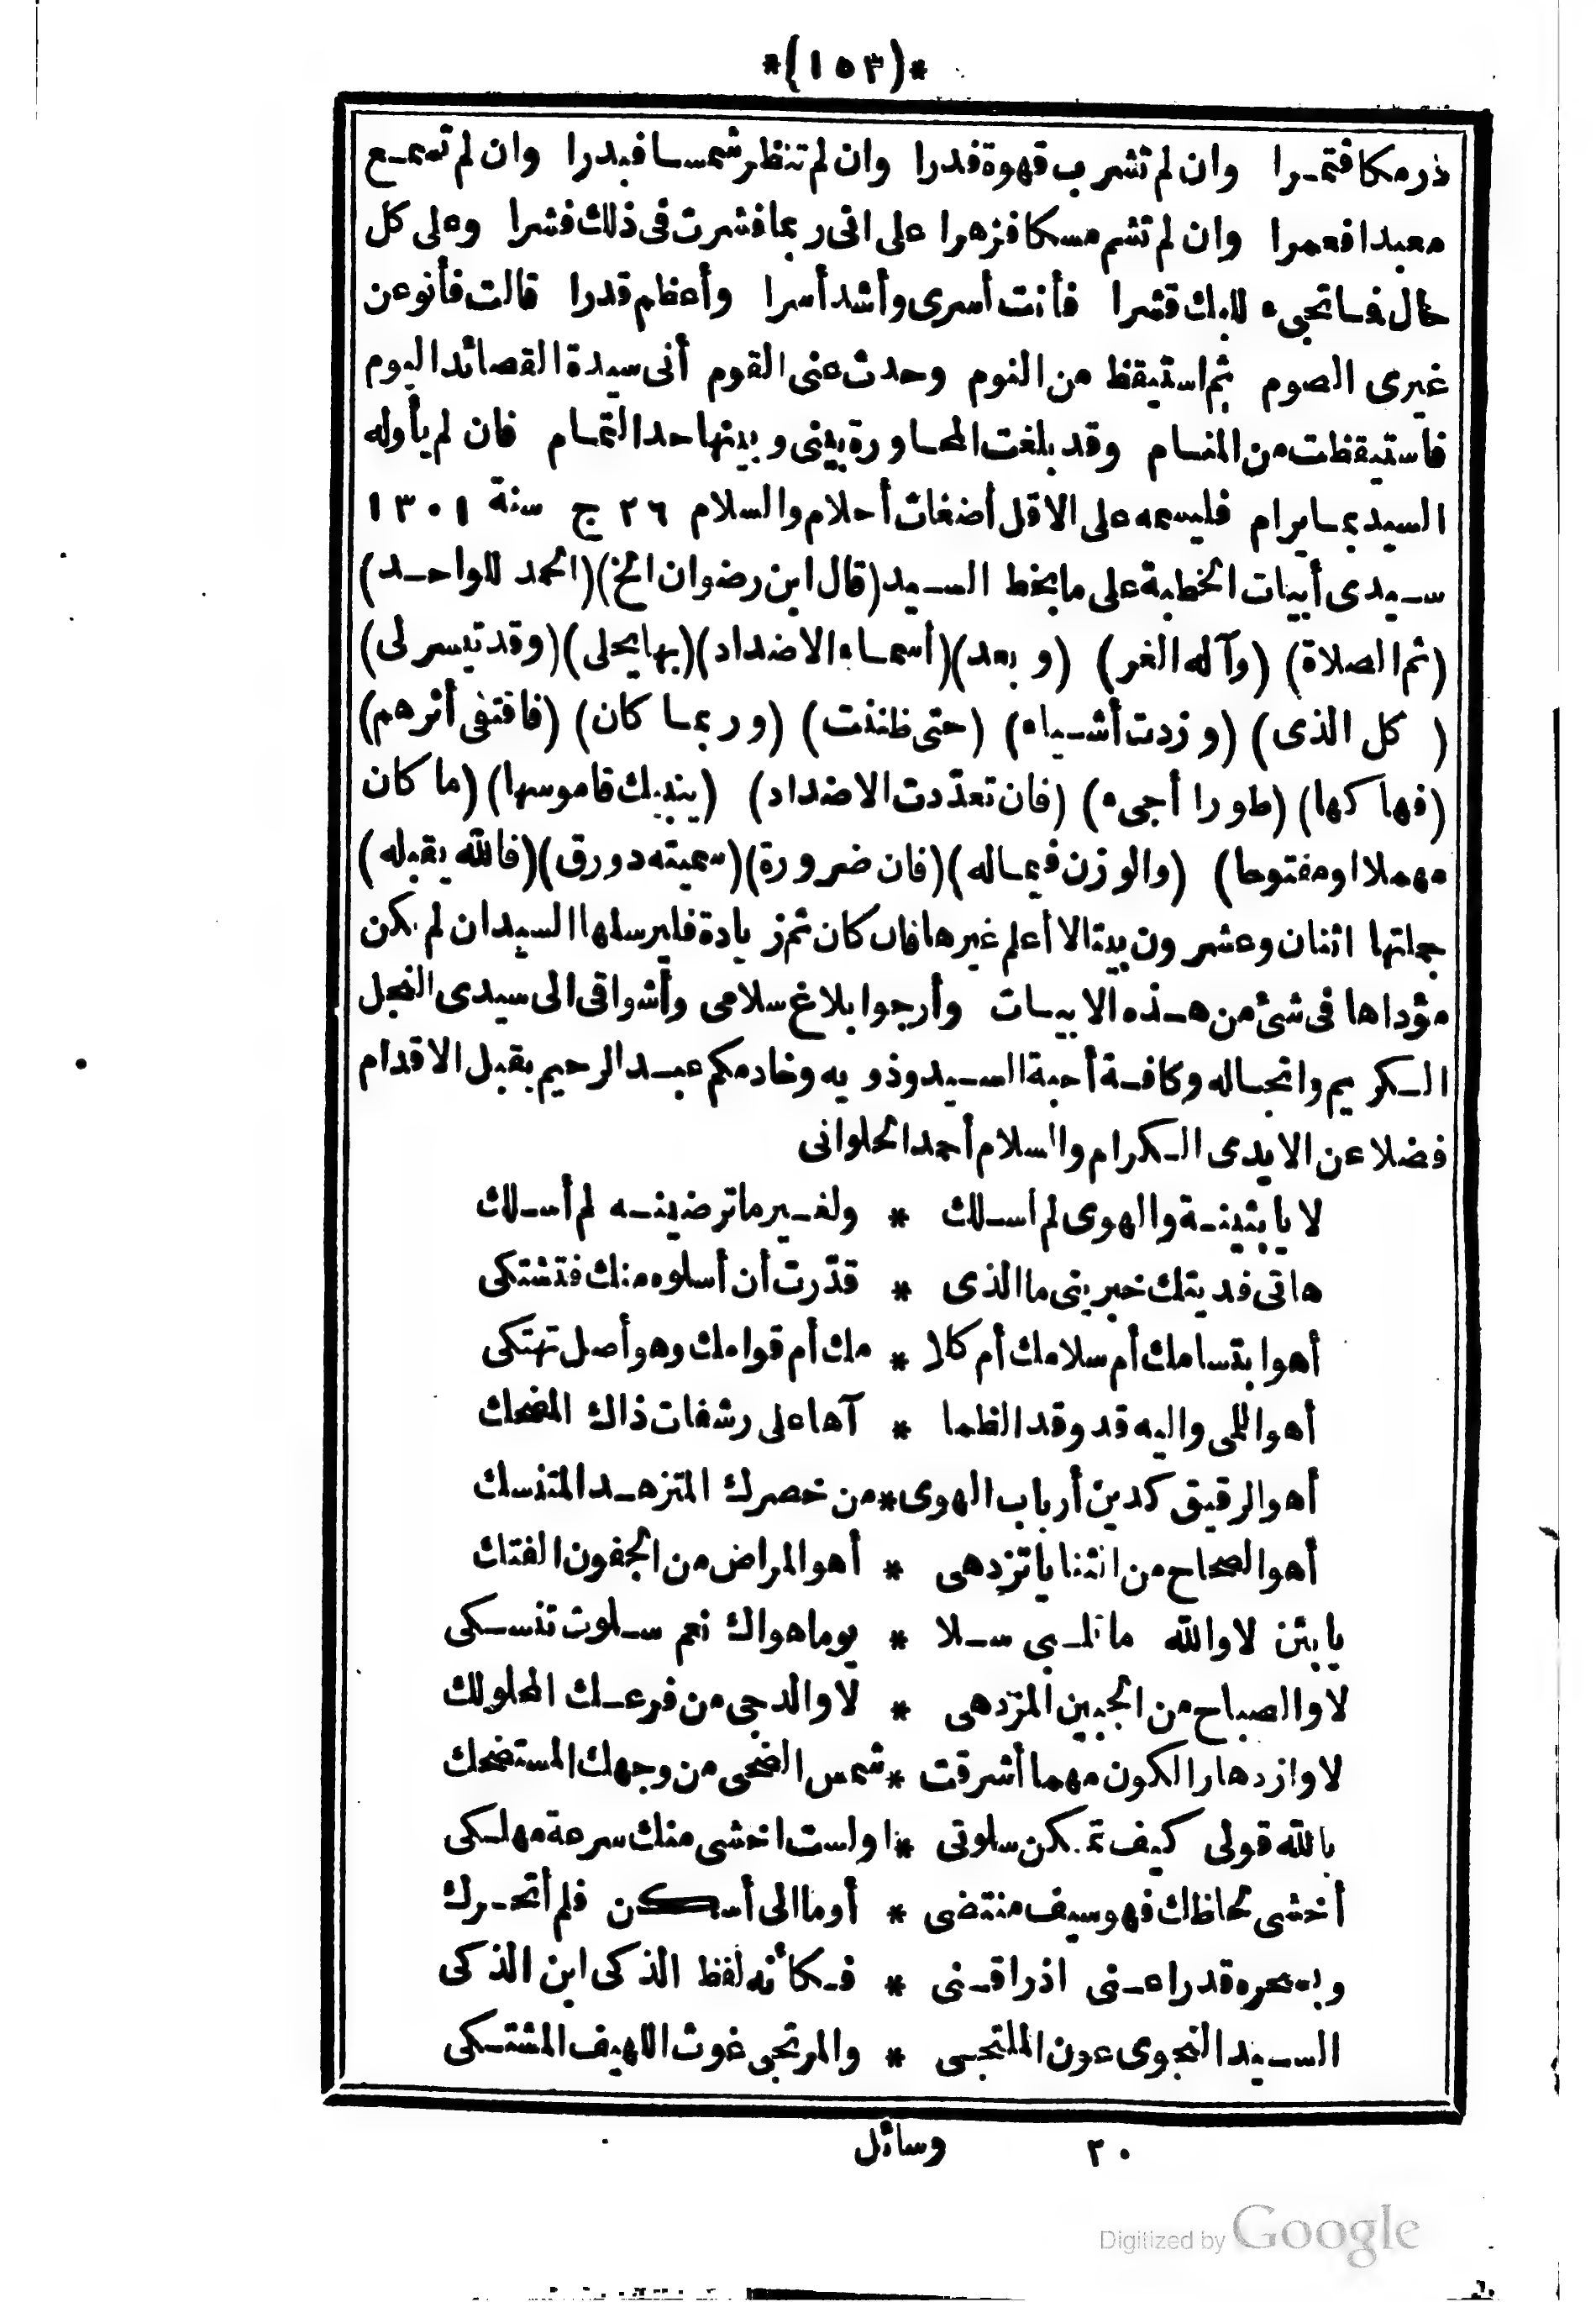 *(١٥٣)*
ذر مكا فتمرا وان لم تشرب قهوة فدرا وان لم تنظر شمسا فبدرا وان لم تسمع
معبدا فعمرا وان لم تشم مسكا فزهرا على انى ربما فشرت فى ذلك فشرا وعلى كل
حال فما تجىء للبك قشرا فأنت أسرى وأشد أسرا وأعظم قدرا قالت فأنوعن
غيرى الصوم ثم استيقظ من النوم وحدث عنى القوم أنى سيدة القصائد اليوم
فاستيقظت من المنام وقد بلغت المحاورة بينى وبينها حد التمام فان لم يأوله
السيد بما يرام فليسمه على الاقل أضغاث أحلام والسلام ٢٦ ج سنة ١٣٠١
سيدى أبيات الخطبة على ما بخط السيد (قال ابن رضوان الخ)(الحمد للواحد)
(ثم الصلاة) (وآله الغر) (وبعد)(أسماء الاضداد)(بها يحلى)(وقد تيسر لى)
(كل الذى) (وزدت أشياء) (حتى ظننت) (وربما كان) (فاقتفى أثرهم)
(فها كها) (طورا أجىء) (فان تعددت الاضداد) (ينبيك قاموسها) (ما كان
مهملا او مفتوحا) (والوزن فيما له)(فان ضرورة)(سميته دورق)(فالله يقبله)
جملتها اثنان وعشرون بيتا لا أعلم غيرها فان كان ثم زيادة فليرسلها السيد ان لم يكن
مؤداها فى شئ من هذه الابيات وأرجوا بلاغ سلامى وأشواقى الى سيدى النجل
الكريم وانجاله وكافة أحبة السيد وذويه وخادمكم عبد الرحيم يقبل الاقدام
فضلا عن الايدى الكرام والسلام أحمد الحلوانى
لا يا بثينة والهوى لم اسلك * ولغير ما ترضينه لم أسلك
هاتى فديتك خبرينى ما الذى * قدّرت أن أسلوه منك فتشتكى
أهوا بتسامك أم سلامك أم كلا * مك أم قوامك وهو أصل تهتكى
أهو اللمى واليه قد وقد الظما * آها على رشفات ذاك المضحك
أهو الرقيق كدين أرباب الهوى * من خصرك المتزهد المتنسك
أهو الصحاح من الثنايا تزدهى * أهو المراض من الجفون الفتك
يا بثن لا والله ما قلبى سلا * يوما هواك نعم سلوت تنسكى
لا والصباح من الجبين المزدهى * لا والدجى من فرعك المحلولك
لا وازدهار الكون مهما أشرقت * شمس الضحى من وجهك المستضحك
بالله قولى كيف تمكن سلوتى * اولست اخشى منك سرعة مهلكى
أخشى لحاظك فهو سيف منتضى * أوما الى أسكن فلم أتحرك
وبسحره قد راعنى اذ راقنى * فكأنه لفظ الذكى ابن الذكى
السيد النجوى عون الملتجى * والمرتجى غوث اللهيف المشتكى
٢٠ وسائل
Digitized by Google